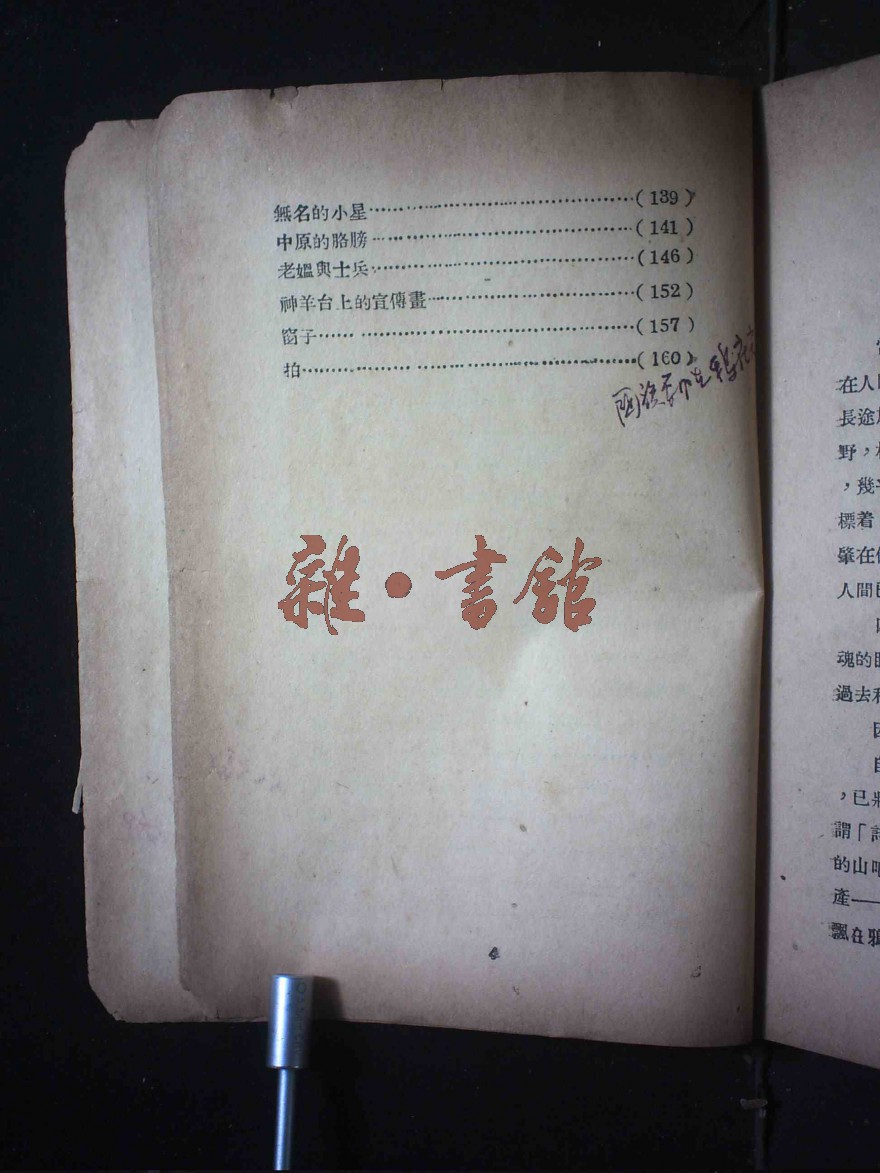 無名的小星……………………………………(139)
中原的胳膀……………………………………(141)
老媼與士兵……………………………………(146)
神羊台上的宣傳畫……………………………(152)
窗子……………………………………………(157)
拍………………………………………………(160)
雜·書館
4
在人
長途
野，
，幾乎
標着
肇在
人間
魂的
過去
自
，已
謂「詩
的山
產——
飄在鴉